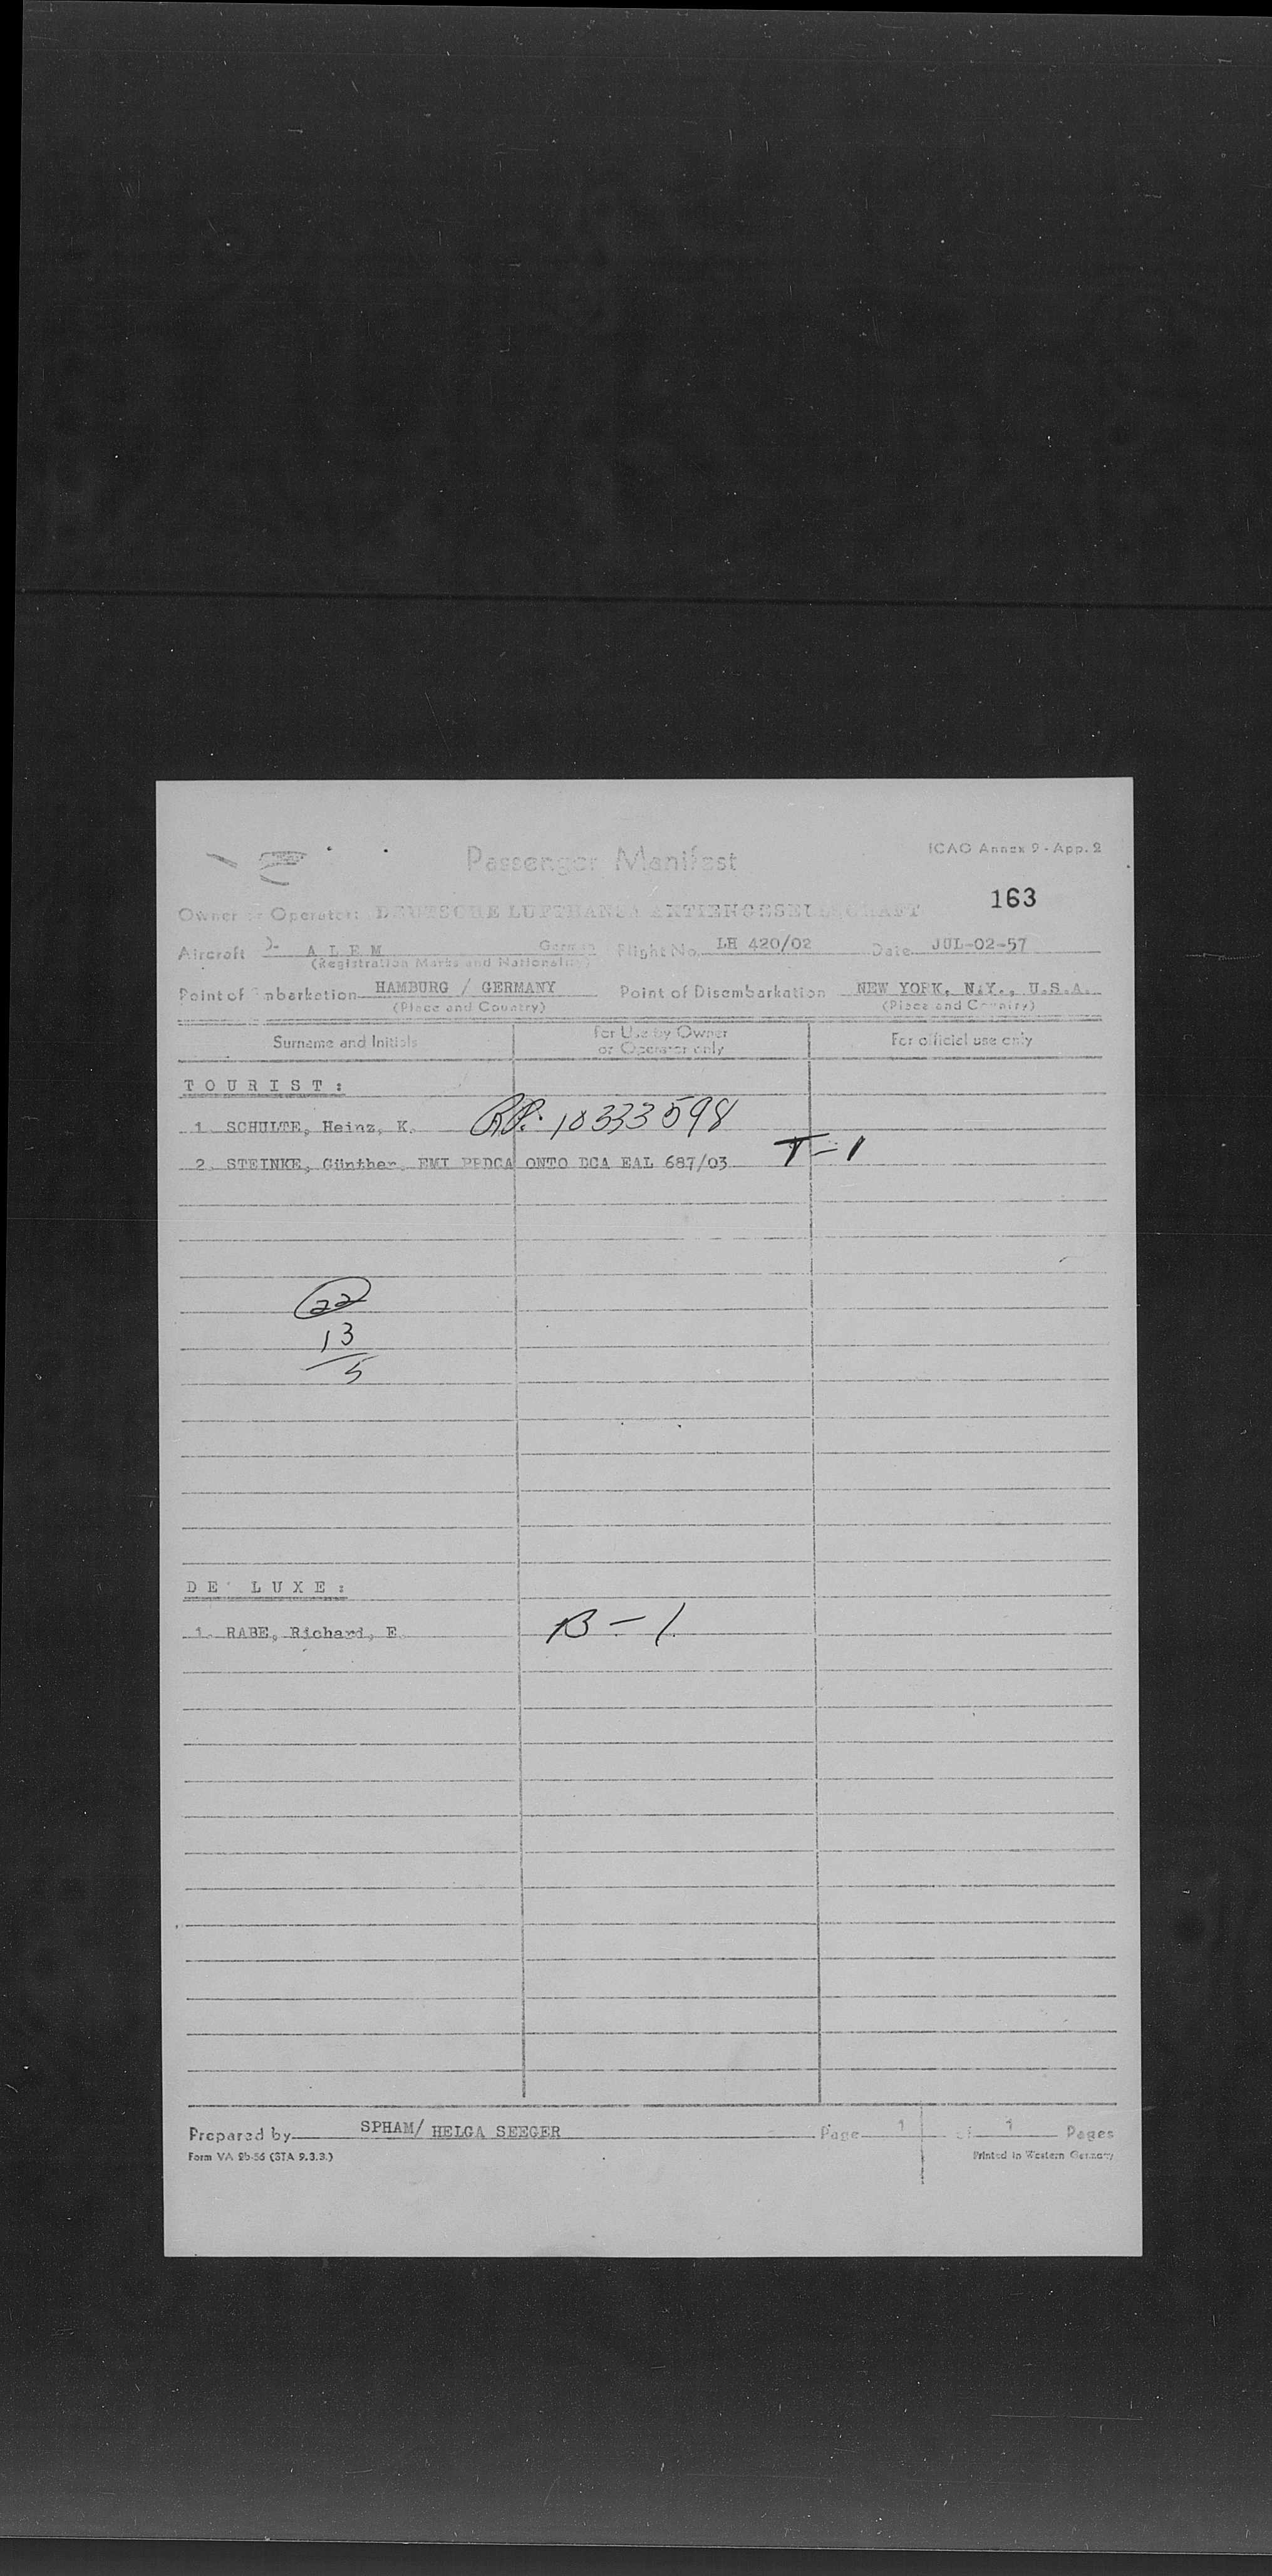 Passenger Manifest
ICAO Annex 9 - App. 2
163
Owner or Operator: DEUTSCHE LUFTHANSA AKTIENGESELLSCHAFT
Aircraft D- A L E M German Flight No. LH 420/02 Date JUL-02-57
(Registration Marks and Nationality)
Point of Embarkation HAMBURG / GERMANY Point of Disembarkation NEW YORK, N.Y., U.S.A.
(Place and Country) (Place and Country)
Surname and Initials For Use by Owner or Operator only For official use only
T O U R I S T :
1. SCHULTE, Heinz, K. RP. 10333598
2. STEINKE, Günther, EMI ONTO DCA EAL 687/03 T-1
22
13
5
D E L U X E :
1. RABE, Richard, E. B-1
Prepared by SPHAM/ HELGA SEEGER Page 1 of 1 Pages
Form VA 2b-56 (STA 9.3.3.) Printed in Western Germany